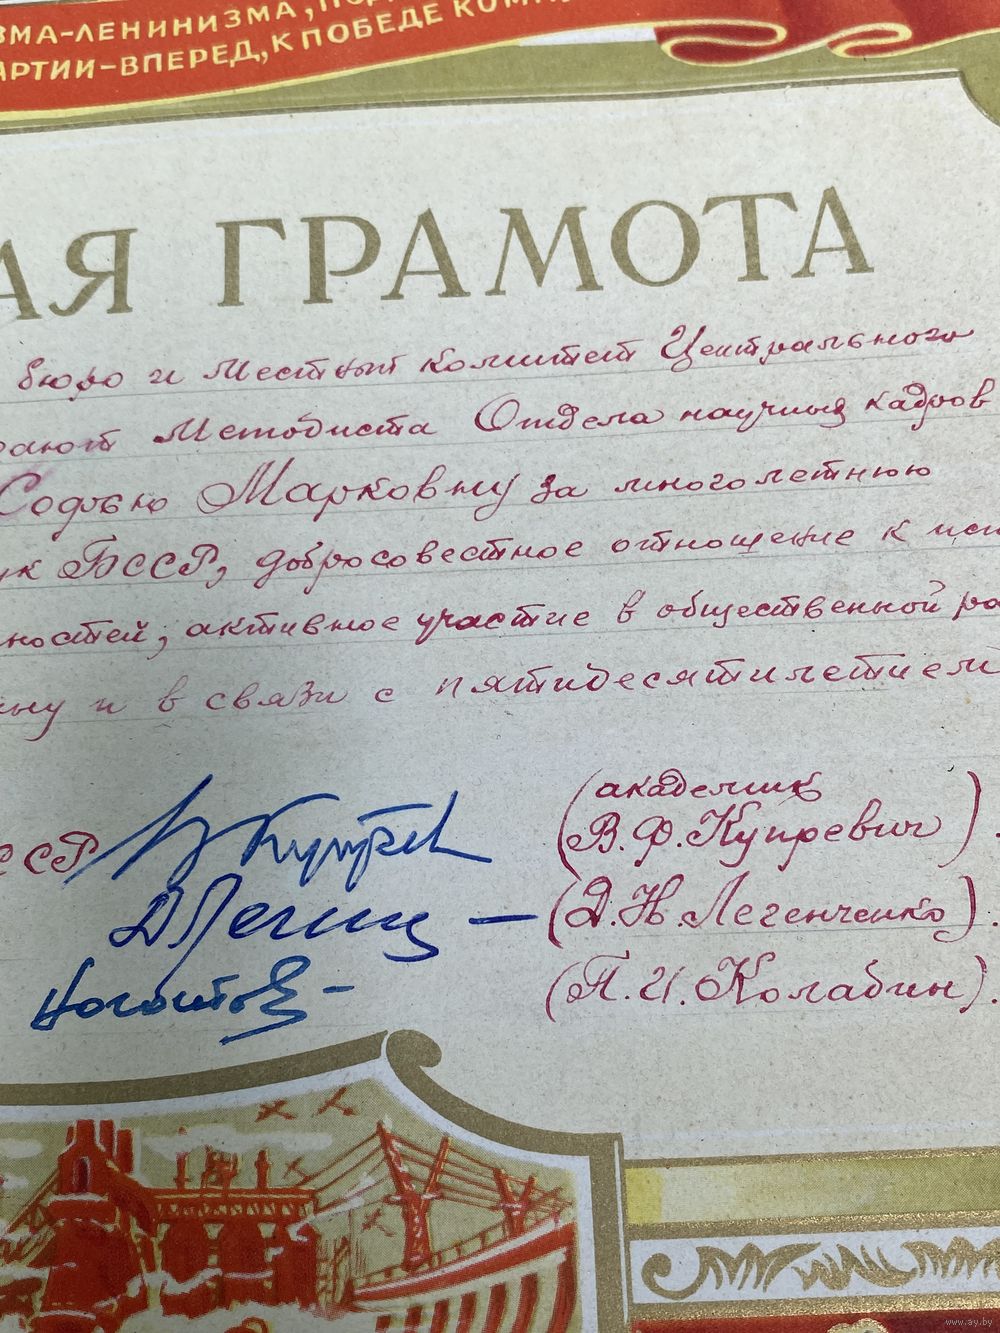 ЗМА-ЛЕНИНИЗМА,
АРТИИ-ВПЕРЕД, К ПОБЕДЕ КОМ
АЯ ГРАМОТА
бюро и Местный комитет Центрального
рают Методиста Отдела научных кадров
Софью Марковну за многолетнюю
ук БССР, добросовестное отношение к исп
ностей, активное участие в общественной ра
ину и в связи с пятидесятилетием
ССР
(академик
В.Ф.Купревич).
(Д.Н.Легенченко).
(П.И.Колабин).
www.ay.by